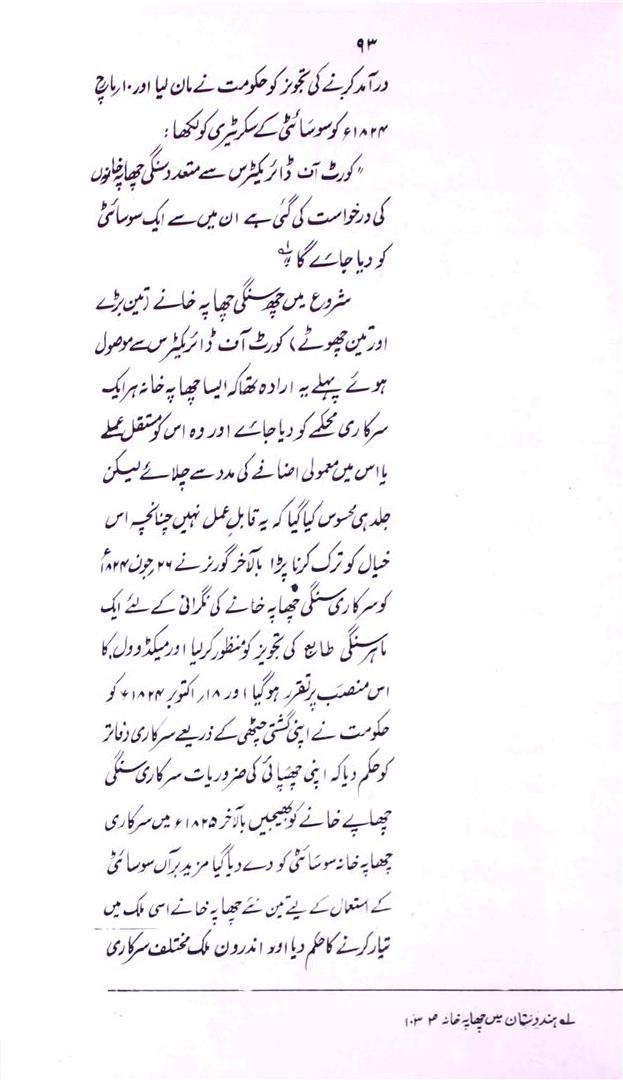 ۹۳
درآمد کرنے کی تجویز کو حکومت نے مان لیا اور ۱۰ر مارچ
۱۸۲۴ء کو سوسائٹی کے سکرٹیری کو لکھا :
"کورٹ آف ڈائریکٹرس سے متعدد سنگی چھاپہ خانوں
کی درخواست کی گئی ہے ان میں سے ایک سوسائٹی
کو دیا جائے گا"؂۱
شروع میں چھ سنگی چھاپہ خانے (تین بڑے
اور تین چھوٹے) کورٹ آف ڈائریکٹرس سے موصول
ہوئے پہلے یہ ارادہ تھا کہ ایسا چھاپہ خانہ ہر ایک
سرکاری محکمے کو دیا جائے اور وہ اس کو مستقل عملے
یا اس میں معمولی اضافے کی مدد سے چلائے لیکن
جلد ہی محسوس کیا گیا کہ یہ قابلِ عمل نہیں چنانچہ اس
خیال کو ترک کرنا پڑا بالآخر گورنر نے ۲۶ر جون ۱۸۲۴ء
کو سرکاری سنگی چھاپہ خانے کی نگرانی کے لئے ایک
ماہر سنگی طابع کی تجویز کو منظور کر لیا اور میکڈوول کا
اس منصب پر تقرر ہو گیا اور ۱۸ر اکتوبر ۱۸۲۴ء کو
حکومت نے اپنی گشتی چٹھی کے ذریعے سرکاری دفاتر
کو حکم دیا کہ اپنی چھپائی کی ضروریات سرکاری سنگی
چھاپے خانے کو بھیجیں بالآخر ۱۸۲۵ء میں سرکاری
چھاپہ خانہ سوسائٹی کو دے دیا گیا مزید برآں سوسائٹی
کے استعمال کے لیے تین نئے چھاپہ خانے اسی ملک میں
تیار کرنے کا حکم دیا اور اندرون ملک مختلف سرکاری
؂۱ ہندوستان میں چھاپہ خانہ ص ۱۰۳